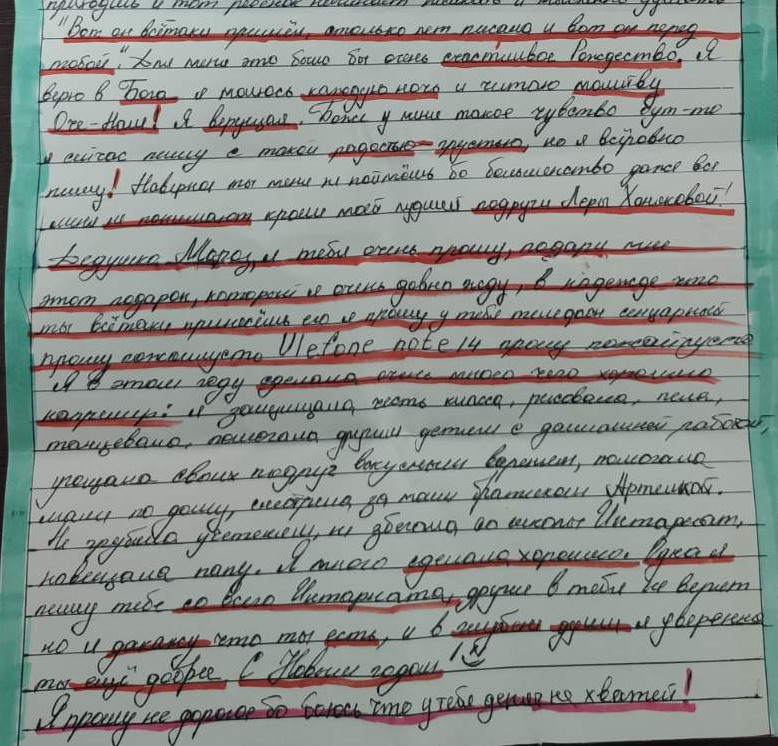 приходишь и тот ребёнок начинает писать и
"Вот он всётаки пришёл, столько лет писала и вот он перед
тобой". Для меня это было бы очень счастливое Рождество. Я
верю в Бога я молюсь каждую ночь и читаю молитву
Оче-Наш! Я верущая. Боже у меня такое чувство бут-то
я сейчас пишу с такой радостью-грустью, но я всёровно
пишу! Наверное ты меня не поймёшь бо большенство даже все
меня не понимают кроме моей лудшей подруги Леры Хоняковой!
Дедушка Мороз, я тебя очень прошу, подари мне
этот подарок, который я очень давно жду, в надежде что
ты всётаки принесёшь его я прошу у тебя телефон сенцарный
прошу пожалуйсто Ulefone note 14 прошу пожайруста
Я в этом году сделала очень много чего хорошого
например: я защищала честь класса, рисовала, пела,
танцевала, помогала другим детям с домашней работой,
угощала своих подруг вкусным варенем, помогала
маме по дому, смотрела за моим братиком Артемкой.
Не грубила учетелям, не збегала со школы Интарнат,
навещала папу. Я много сделала хорошого. Одна я
пишу тебе со всего Интарната, другие в тебя не верят
но я дакажу что ты есть, и в глубене души я уверенна
ты ещё добрее С Новым годом!
Я прошу не дорогое бо боюсь что у тебя денег не хватей!